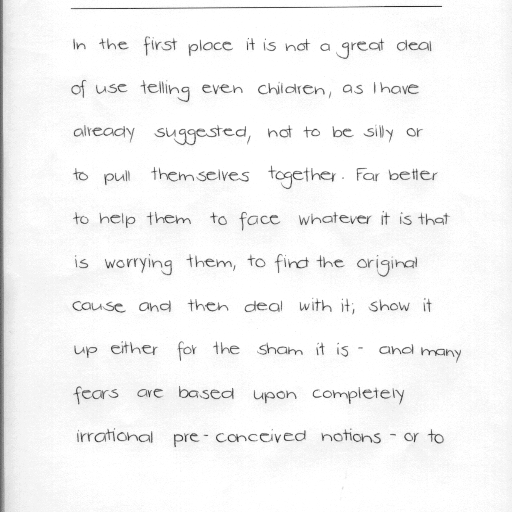 In the first place it is not a great deal
of use telling even children, as I have
already suggested, not to be silly or
to pull themselves together. Far better
to help them to face whatever it is that
is worrying them, to find the original
cause and then deal with it; show it
up either for the sham it is - and many
fears are based upon completely
irrational pre-conceived notions - or to